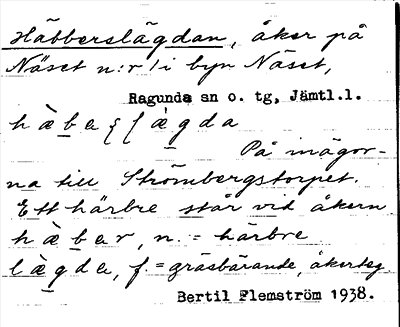 Häbberslägdan, åker på
Näset n:r 1 i byn Näset,
Ragunda sn o. tg, Jämtl.l.
hàb̲a ʃl̀æg̲da
På inägor-
na till Strömbergstorpet.
Ett härbre står vid åkern
hæ̀b̲ar, n. = härbre
læ̀g̲da, f. = gräsbärande åkerteg.
Bertil Flemström 1938.